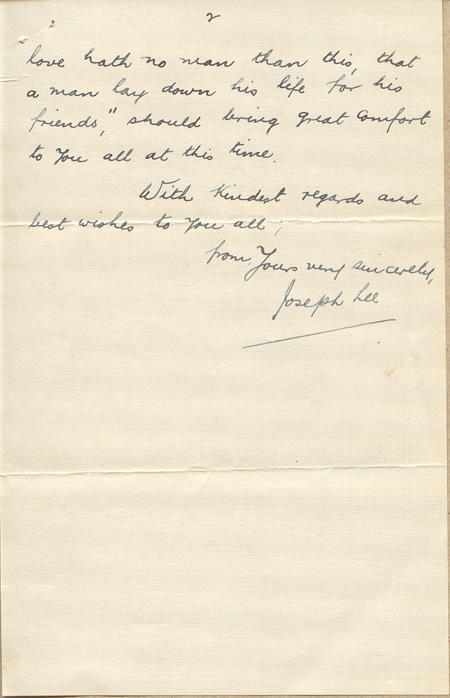 2
love hath no man than this, that
a man lay down his life for his
friends," should bring great comfort
to you all at this time.
With kindest regards and
best wishes to you all;
from Yours very sincerely,
Joseph Lee